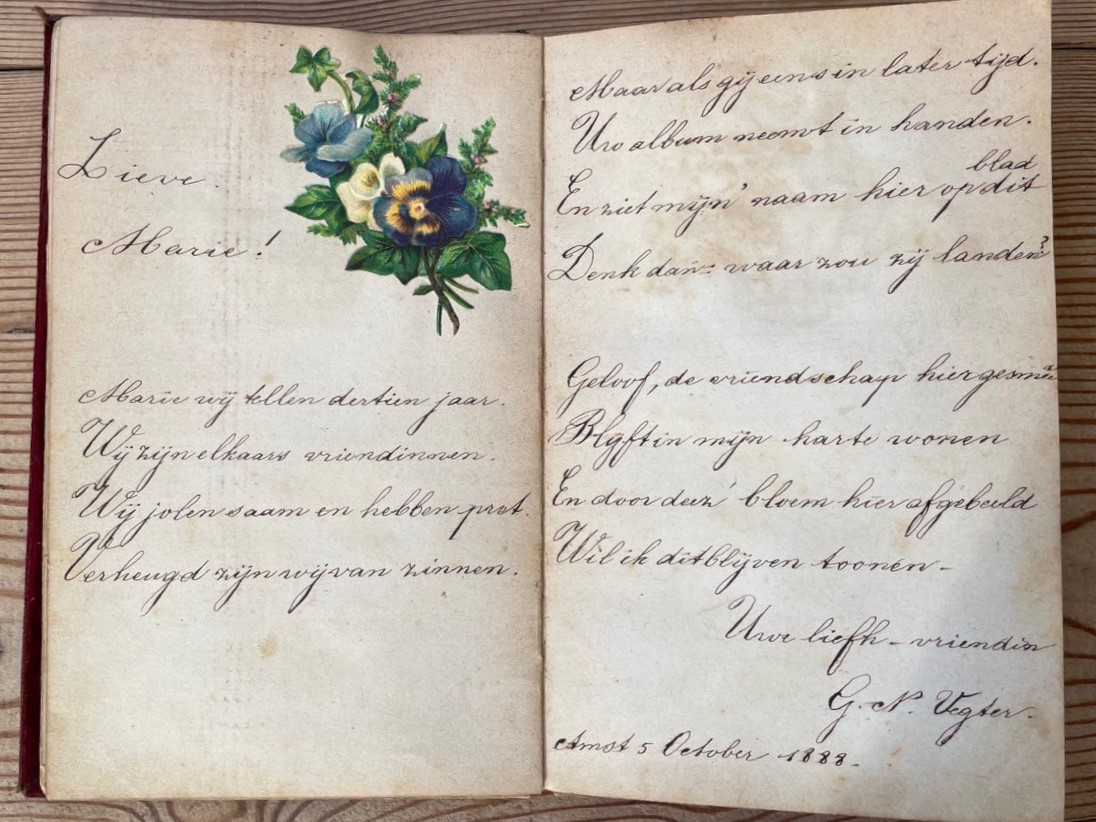 Lieve.
Marie!
Marie wij tellen dertien jaar.
Wij zijn elkaars vriendinnen.
Wij jolen saam en hebben pret.
Verheugd zijn wij van zinnen.
Maar als gij eens in later tijd.
Uw album neemt in handen.
En ziet mijn' naam hier op dit blad
Denk dan: waar zou zij landen?
Geloof, de vriendschap hier gesmeed
Blyft in mijn harte wonen
En door deez' bloem hier afgebeeld
Wil ik dit blijven toonen -
Uwe liefh - vriendin
G. N. Vegter.
Amst 5 October 1888.